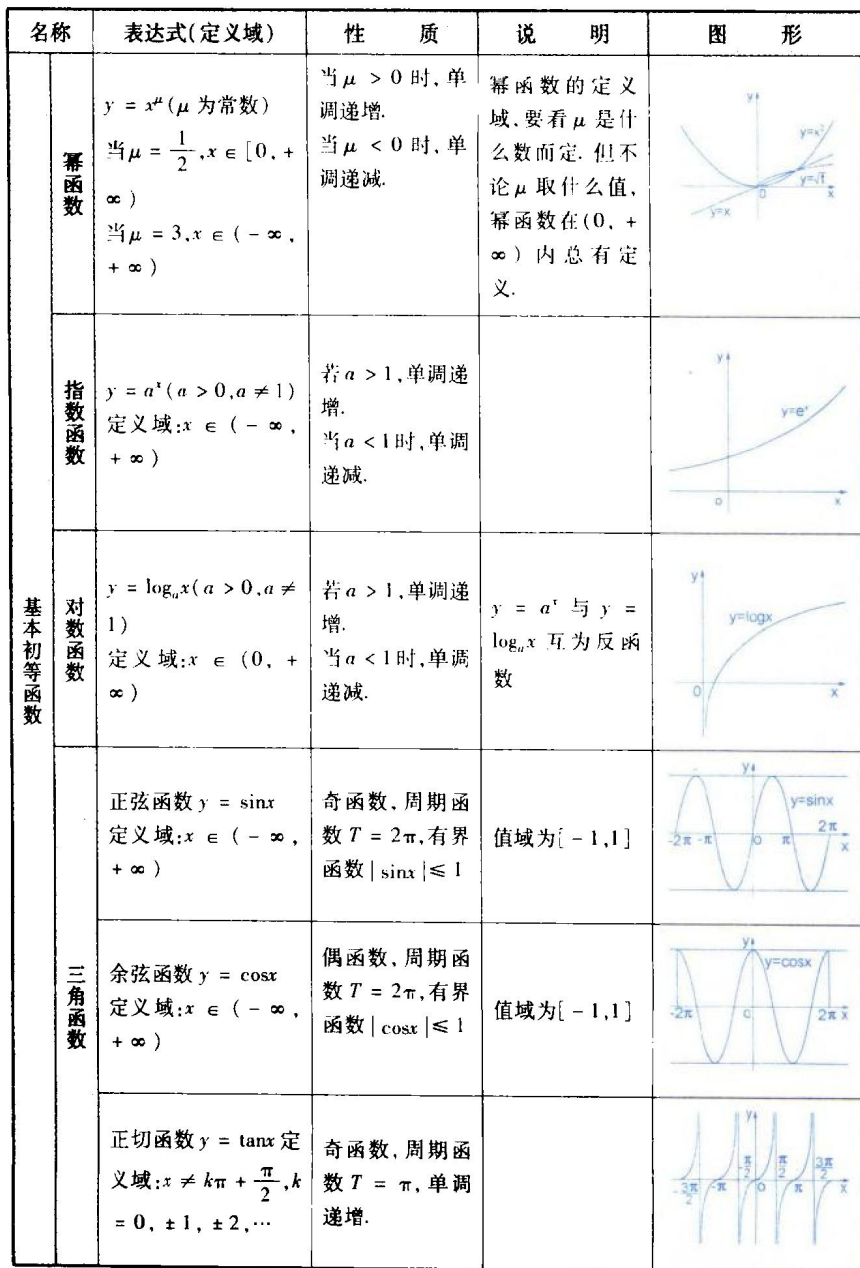 名称 表达式(定义域) 性 质 说 明 图 形
基本初等函数
幂函数
y = x^μ(μ 为常数)
当μ = 1/2,x ∈ [0, +
∞)
当μ = 3,x ∈ ( - ∞,
+ ∞)
当μ > 0 时,单
调递增.
当μ < 0 时,单
调递减.
幂函数的定义
域,要看 μ 是什
么数而定. 但不
论 μ 取什么值,
幂函数在(0, +
∞) 内总有定
义.
y
y=x²
y=x
0
x
指数函数
y = a^x(a > 0,a ≠ 1)
定义域:x ∈ ( - ∞,
+ ∞)
若 a > 1,单调递
增.
当 a < 1时,单调
递减.
y
y=e^x
0
x
对数函数
y = log_a x(a > 0,a ≠
1)
定义域:x ∈ (0, +
∞)
若 a > 1,单调递
增.
当 a < 1时,单调
递减.
y = a^x 与 y =
log_a x 互为反函
数
y
y=logx
0
x
三角函数
正弦函数 y = sinx
定义域:x ∈ ( - ∞,
+ ∞)
奇函数,周期函
数 T = 2π,有界
函数|sinx|≤ 1
值域为[ - 1,1]
y
y=sinx
-2π -π 0 π 2π
x
余弦函数 y = cosx
定义域:x ∈ ( - ∞,
+ ∞)
偶函数,周期函
数 T = 2π,有界
函数|cosx|≤ 1
值域为[ - 1,1]
y
y=cosx
-2π 0 2π x
正切函数 y = tanx 定
义域:x ≠ kπ + π/2,k
= 0, ±1, ±2,⋯
奇函数,周期函
数 T = π, 单调
递增.
y
-π/2 π/2 3π/2
-3π/2 -π 0 π x